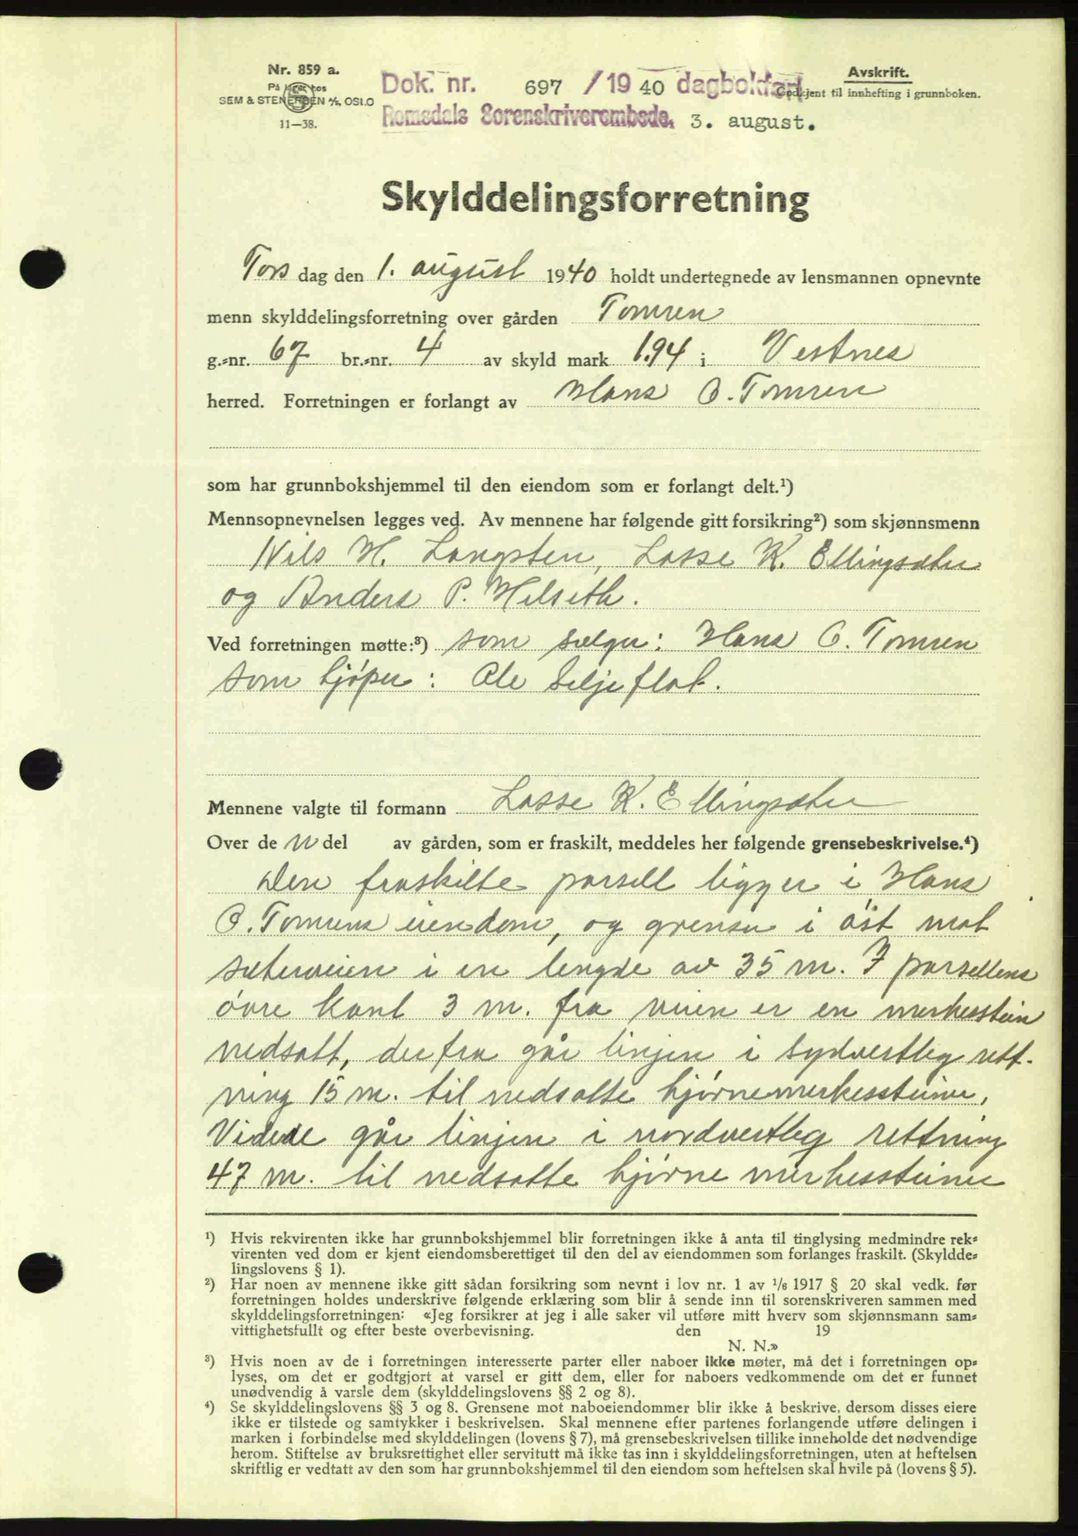 Nr. 859 a.
På lager hos
SEM & STENERSEN A/S, OSLO
11—38.
Dok. nr. 697 /19 40 dagbokført
Romsdals Sorenskriverembede. 3. august.
Avskrift.
Godkjent til innhefting i grunnboken.
Skylddelingsforretning
Tors dag den 1. august 1940 holdt undertegnede av lensmannen opnevnte
menn skylddelingsforretning over gården Tomren
g.-nr. 67 br.-nr. 4 av skyld mark 1.94 i Vestnes
herred. Forretningen er forlangt av Hans O. Tomren
som har grunnbokshjemmel til den eiendom som er forlangt delt.¹)
Mennsopnevnelsen legges ved. Av mennene har følgende gitt forsikring²) som skjønnsmenn
Nils H. Langsten, Lasse K. Ellingsæter
og Anders P. Helseth.
Ved forretningen møtte:³) som selger: Hans O. Tomren
som kjøper: Ole Seljeflot.
Mennene valgte til formann Lasse K. Ellingsæter
Over de n del av gården, som er fraskilt, meddeles her følgende grensebeskrivelse.⁴)
Den fraskilte parsell ligger i Hans
O. Tomrens eiendom, og grenser i øst mot
seterveien i en lengde av 35 m. I parsellens
øvre kant 3 m. fra veien er en merkesstein
nedsatt, derfra går linjen i sydvestleg rett-
ning 15 m. til nedsatte hjørnemerkessteine,
Videre går linjen i nordvestleg rettning
47 m. til nedsatte hjørne merkessteine
¹) Hvis rekvirenten ikke har grunnbokshjemmel blir forretningen ikke å anta til tinglysing medmindre rek-
virenten ved dom er kjent eiendomsberettiget til den del av eiendommen som forlanges fraskilt. (Skyldde-
lingslovens § 1).
²) Har noen av mennene ikke gitt sådan forsikring som nevnt i lov nr. 1 av 1/6 1917 § 20 skal vedk. før
forretningen holdes underskrive følgende erklæring som blir å sende inn til sorenskriveren sammen med
skylddelingsforretningen: «Jeg forsikrer at jeg i alle saker vil utføre mitt hverv som skjønnsmann sam-
vittighetsfullt og efter beste overbevisning. den 19
N. N.»
³) Hvis noen av de i forretningen interesserte parter eller naboer ikke møter, må det i forretningen op-
lyses, om det er godtgjort at varsel er gitt dem, eller for naboers vedkommende om det er funnet
unødvendig å varsle dem (skylddelingslovens §§ 2 og 8).
⁴) Se skylddelingslovens §§ 3 og 8. Grensene mot naboeiendommer blir ikke å beskrive, dersom disses eiere
ikke er tilstede og samtykker i beskrivelsen. Skal mennene efter partenes forlangende utføre delingen i
marken i forbindelse med skylddelingen (lovens § 7), må grensebeskrivelsen tillike inneholde det nødvendige
herom. Stiftelse av bruksrettighet eller servitutt må ikke tas inn i skylddelingsforretningen, uten at heftelsen
skriftlig er vedtatt av den som har grunnbokshjemmel til den eiendom som heftelsen skal hvile på (lovens § 5).